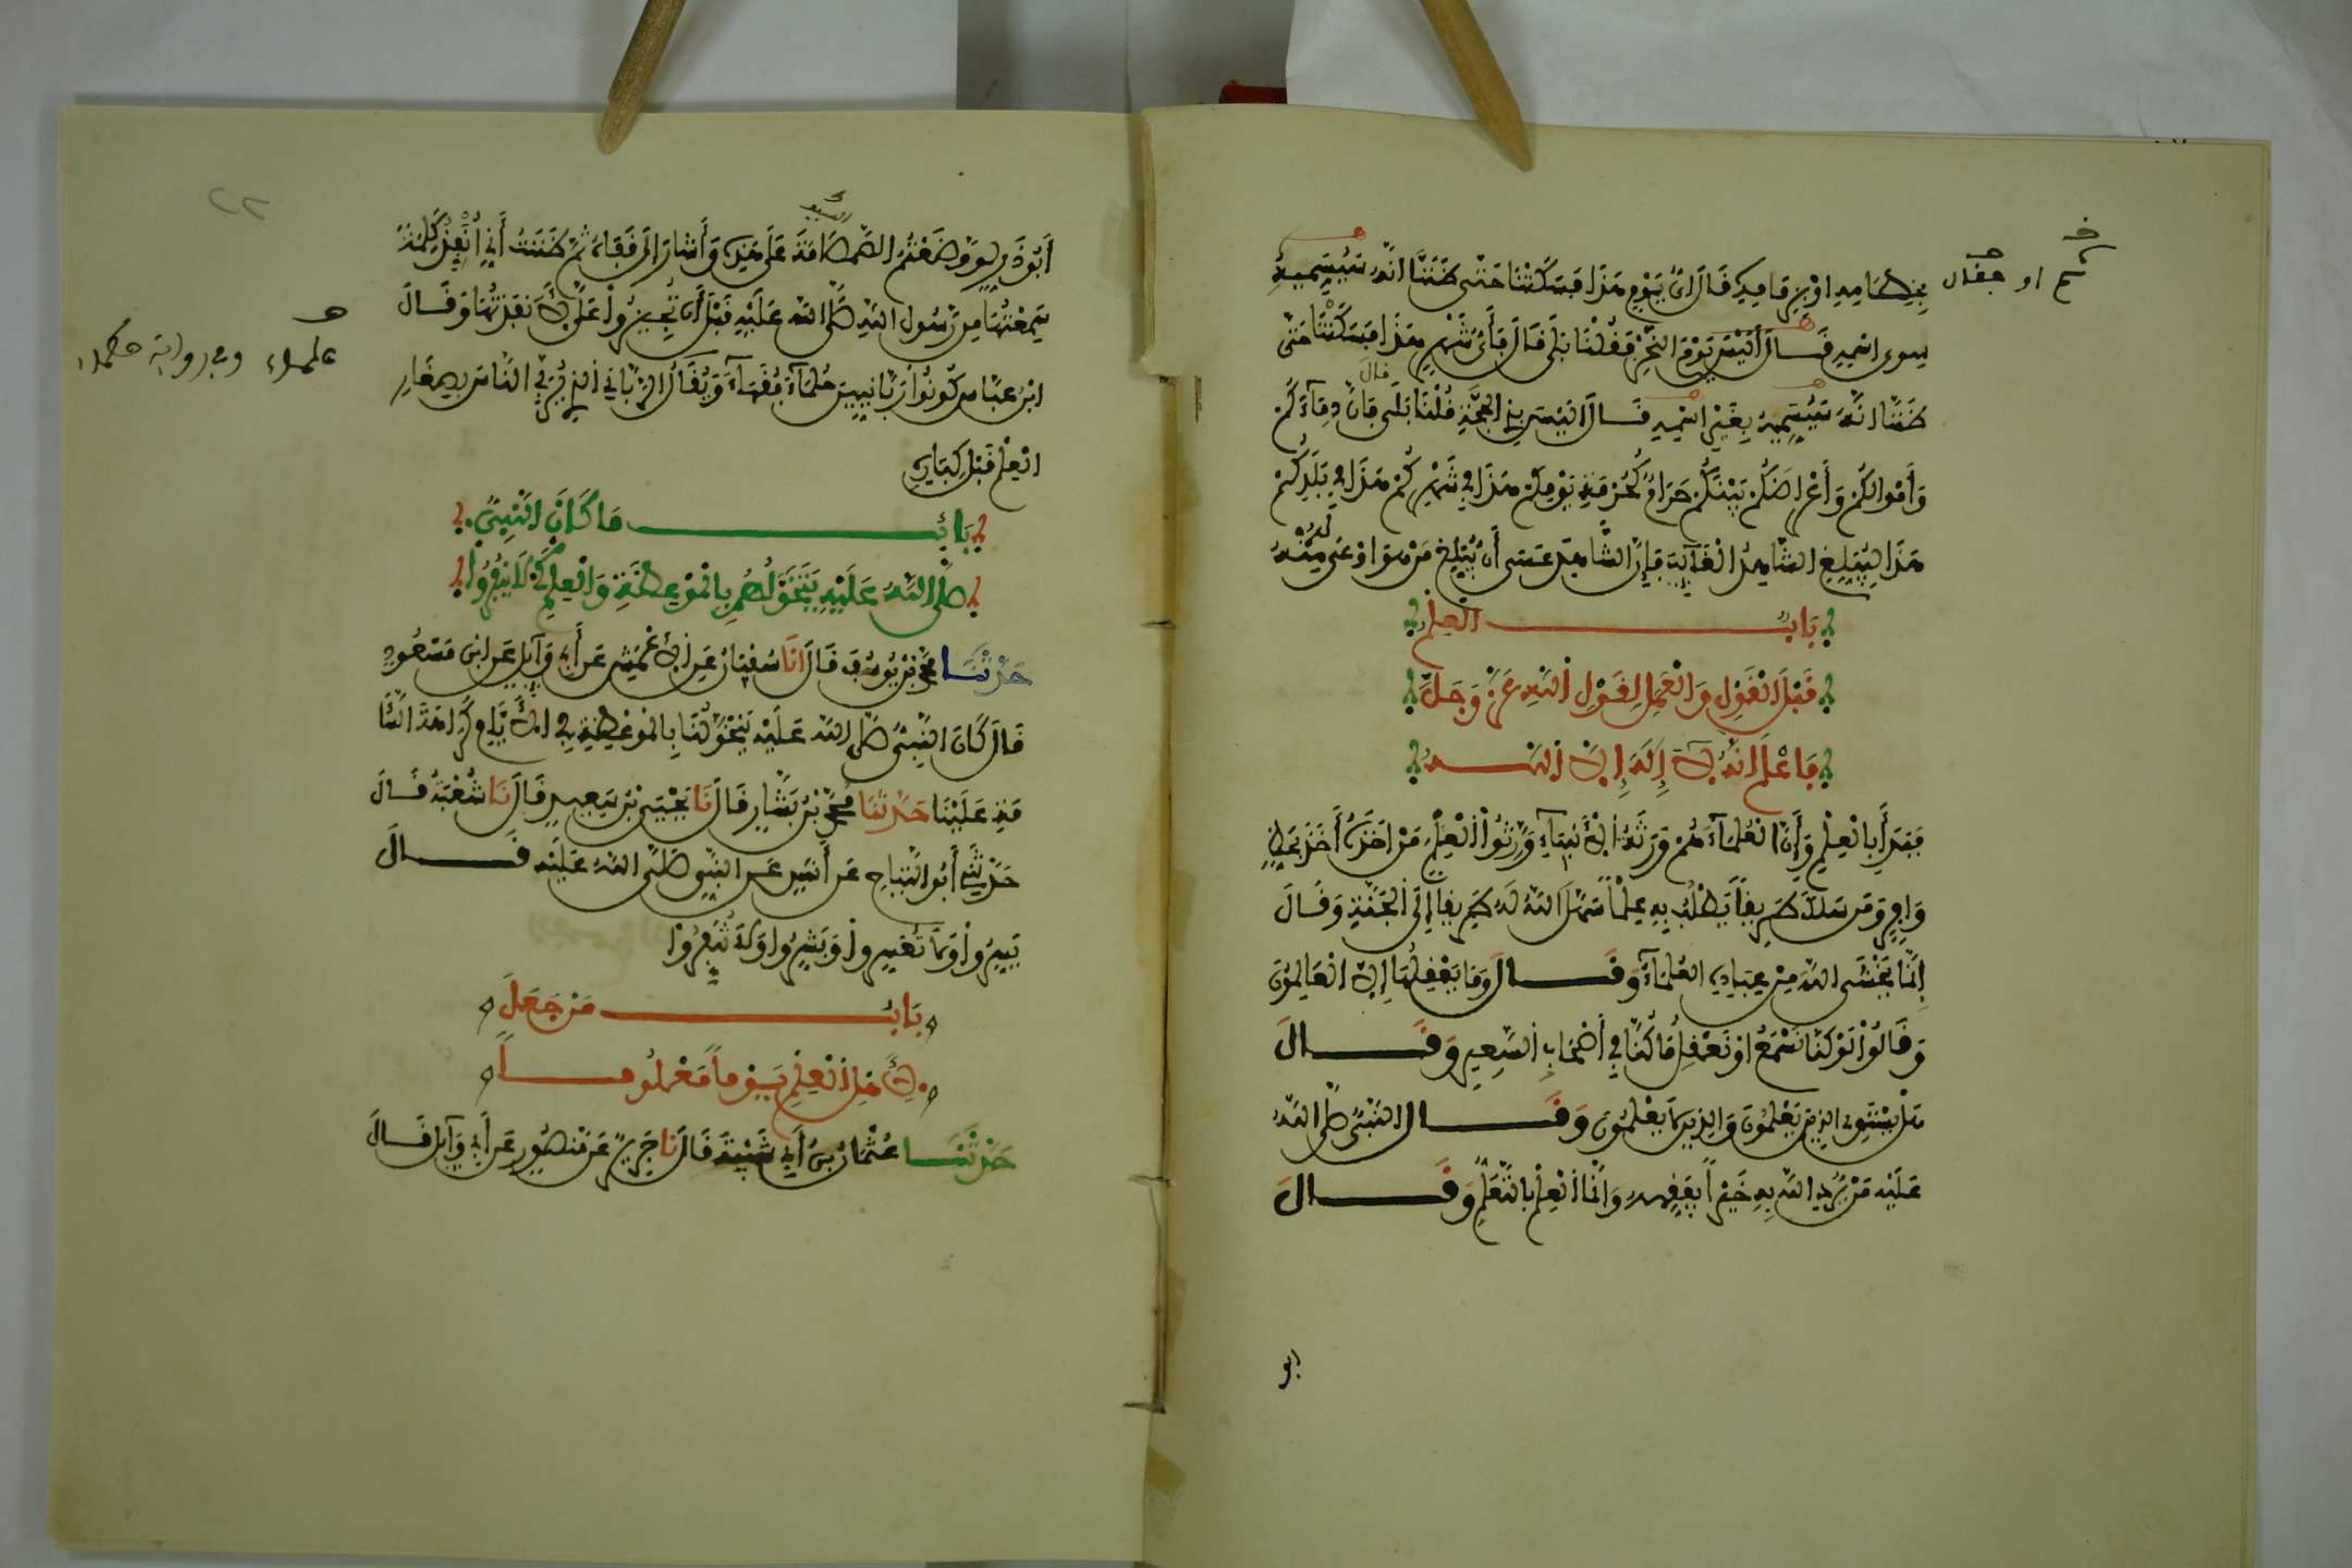 بِخِطَامِهِ اوْ بِزِمَامِهِ قَالَ أيُّ يَوْمٍ هَذَا فَسَكَتْنَا حَتَّى ظَنَنَّا انَّهُ سَيُسَمِّيهِ
سِوى اسْمِهِ قَالَ أَلَيْسَ يَوْمَ النَّحْرِ فَقُلْنَا بَلَى قَالَ فَأَيُّ شَهْرٍ هَذَا فَسَكَتْنَا حَتَّى
ظَنَنَّا انَّهُ سَيُسَمِّيهِ بِغَيْرِ اسْمِهِ قَالَ الَيْسَ بِذِي الحِجَّةِ قُلْنَا بَلَى قَالَ فَإِنَّ دِمَآءَكُمْ
وَأَمْوالَكُمْ وَأَعْرَاضَكُمْ بَيْنَكُمْ حَرَامٌ كَحُرْمَةِ يَوْمِكُمْ هَذَا فِي شَهْرِكُمْ هَذَا فِي بَلَدِكُمْ
هَذَا لِيُبَلِّغِ الشَّاهِدُ الْغَائِبَ فَإِنَّ الشَّاهِدَ عَسَى أَنْ يُبَلِّغَ مَنْ هُوَ اوْعَى لَهُ مِنْهُ
بَابُ العِلْمِ
قَبْلَ الْقَوْلِ وَالْعَمَلِ لِقَوْلِ اللَّهِ عَزَّ وَجَلَّ
فَاعْلَمْ انَّهُ لَا إِلَهَ إِلَّا اللَّهُ
فَبَدَأَ بِالْعِلْمِ وَأَنَّ الْعُلَمَآءَ هُمْ وَرَثَةُ الْأَنْبِيَآءِ وَرَّثُوا الْعِلْمَ مَنْ اخَذَهُ أَخَذَ بِحَظٍّ
وَافِرٍ وَمَنْ سَلَكَ طَرِيقاً يَطْلُبُ بِهِ عِلْماً سَهَّلَ اللَّهُ لَهُ طَرِيقاً إِلَى الْجَنَّةِ وَقَالَ
إِنَّمَا يَخْشَى اللَّهَ مِنْ عِبَادِهِ العُلَمَآءُ وَقَالَ وَمَا يَعْقِلُهَا إِلَّا الْعَالِمُونَ
وَقَالُوا لَوْ كُنَّا نَسْمَعُ اوْ نَعْقِلُ مَا كُنَّا فِي أَصْحَابِ السَّعِيرِ وَقَالَ
هَلْ يَسْتَوِي الذِينَ يَعْلَمُونَ وَالذِينَ لَا يَعْلَمُونَ وَقَالَ النَّبِيُّ صَلَّى اللَّهُ
عَلَيْهِ مَنْ يُرِدِ اللَّهُ بِهِ خَيْراً يُفَقِّهْهُ وَإِنَّمَا الْعِلْمُ بِالتَّعَلُّمِ وَقَالَ
ابو
او فقال
أَبُو ذَرٍّ لَوْ وَضَعْتُمُ الصَّمْصَامَةَ عَلَى هَذِهِ وَأَشَارَ الَى قَفَاهُ ثُمَّ ظَنَنْتُ أَنِّي أُنْفِذُ كَلِمَةً
السيف
سَمِعْتُهَا مِن رَّسُولِ اللَّهِ صَلَّى اللَّهُ عَلَيْهِ قَبْلَ أَن تُجِيزُوا عَلَيَّ لَأَنْفَذْتُهَا وَقَالَ
ابْنُ عَبَّاسٍ كُونُوا رَبَّانِيِّينَ حُلَمَآءَ فُقَهَآءَ وَيُقَالُ الرَّبَّانِي الذِي يُرَبِّي النَّاسَ بِصِغَارِ
علماء وفي رواية حكماء
الْعِلْمِ قَبْلَ كِبَارِهِ
بَابُ مَا كَانَ النَّبِيُّ
صَلَّى اللَّهُ عَلَيْهِ يَتَخَوَّلُهُمْ بِالْمَوْعِظَةِ وَالْعِلْمِ كَيْ لَا يَنْفِرُوا
حَدَّثَنَا مُحَمَّدُ بْنُ يُوسُفَ قَالَ انَا سُفْيَانُ عَنِ الْأَعْمَشِ عَنْ أَبِي وَآئِلٍ عَنِ ابْنِ مَسْعُودٍ
قَالَ كَانَ النَّبِيُّ صَلَّى اللَّهُ عَلَيْهِ يَتَخَوَّلُنَا بِالْمَوْعِظَةِ فِي الْأَيَّامِ كَرَاهَةَ السَّئَا
مَةِ عَلَيْنَا حَدَّثَنَا مُحَمَّدُ بْنُ بَشَّارٍ قَالَ نَا يَحْيَى بْنُ سَعِيدٍ قَالَ نَا شُعْبَةُ قَالَ
حَدَّثَنِي أَبُو التَّيَّاحِ عَنْ أَنَسٍ عَنِ النَّبِيِّ صَلَّى اللَّهُ عَلَيْهِ قَالَ
يَسِّرُوا وَلَا تُعَسِّرُوا وَبَشِّرُوا وَلَا تُنَفِّرُوا
بَابُ مَنْ جَعَلَ
لِأَهْلِ الْعِلْمِ يَوْماً مَعْلُوماً
حَدَّثَنَا عُثْمَانُ بْنُ أَبِي شَيْبَةَ قَالَ نَا جَرِيرٌ عَنْ مَنْصُورٍ عَنْ أَبِي وَآئِلٍ قَالَ
٢٢